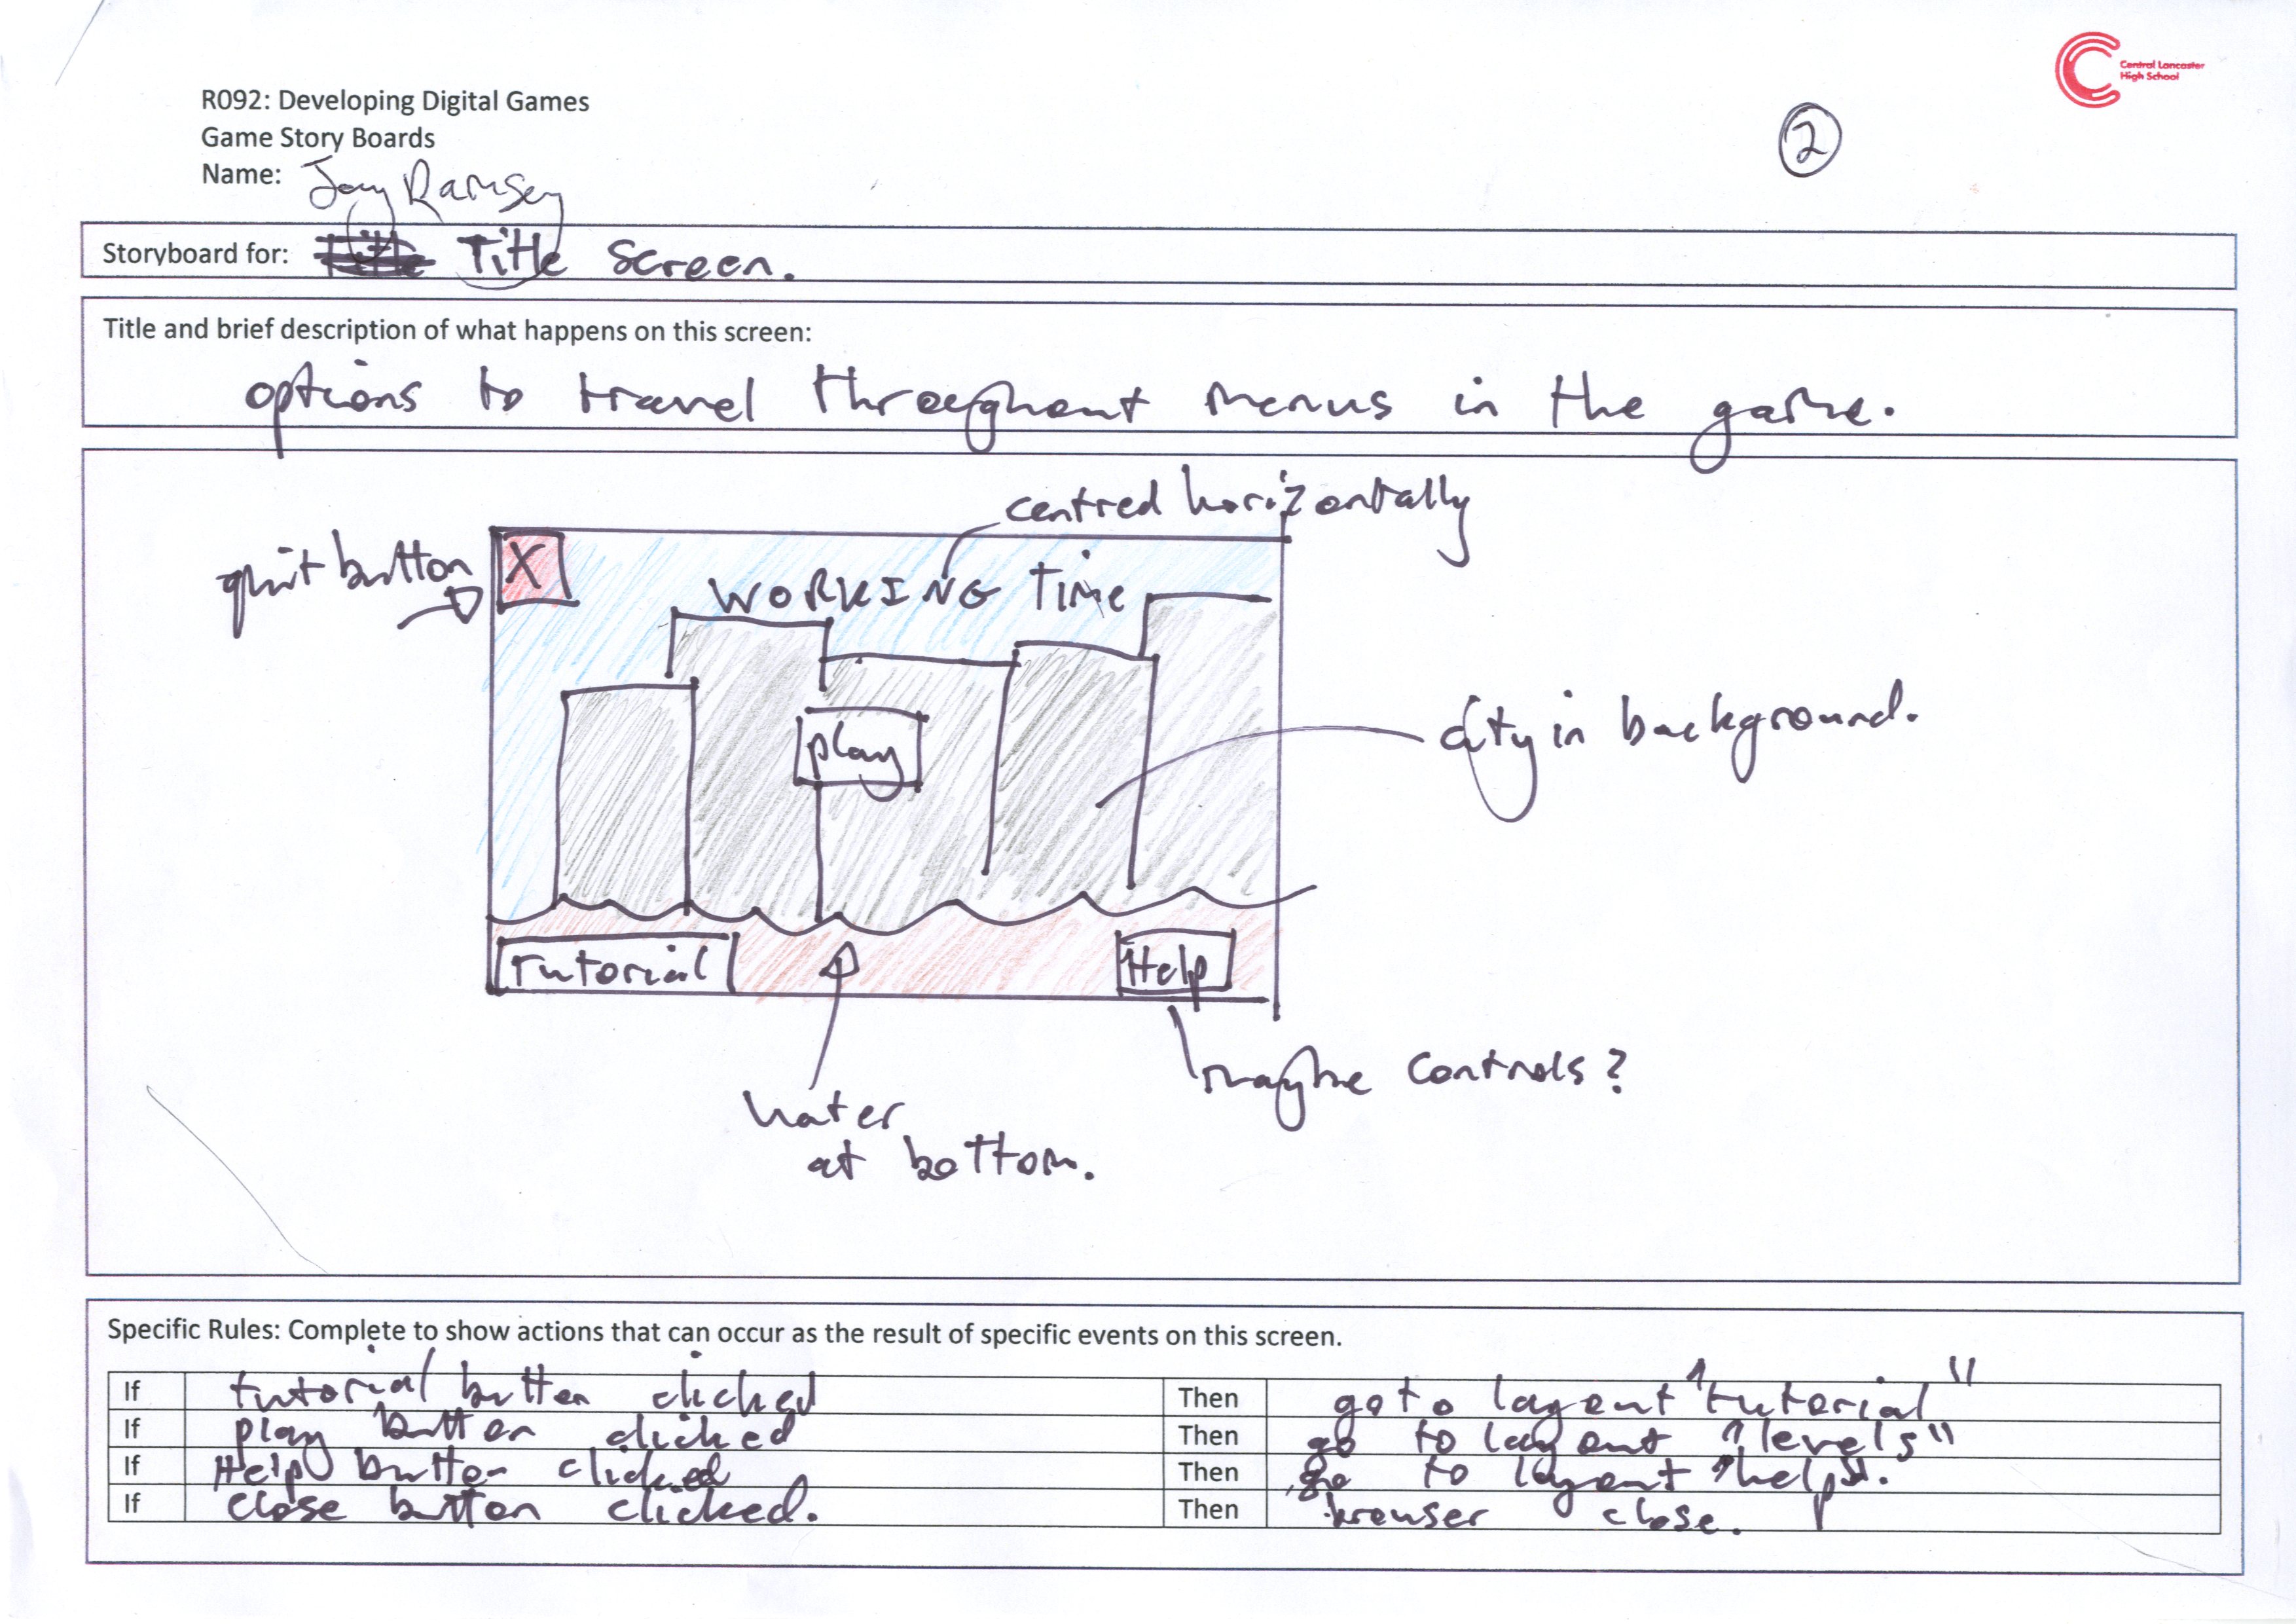 Central Lancaster
High School
R092: Developing Digital Games
2
Game Story Boards
Name: Jay Ramsey
Storyboard for: Title Screen.
Title and brief description of what happens on this screen:
options to travel throughout menus in the game.
centred horizontally
quit button
X
WORKING TIME
play
city in background.
Tutorial
Help
maybe controls?
water
at bottom.
Specific Rules: Complete to show actions that can occur as the result of specific events on this screen.
If tutorial button clicked Then go to layout "tutorial"
If play button clicked Then go to layout "levels"
If Help button clicked Then go to layout "help".
If close button clicked. Then browser close.